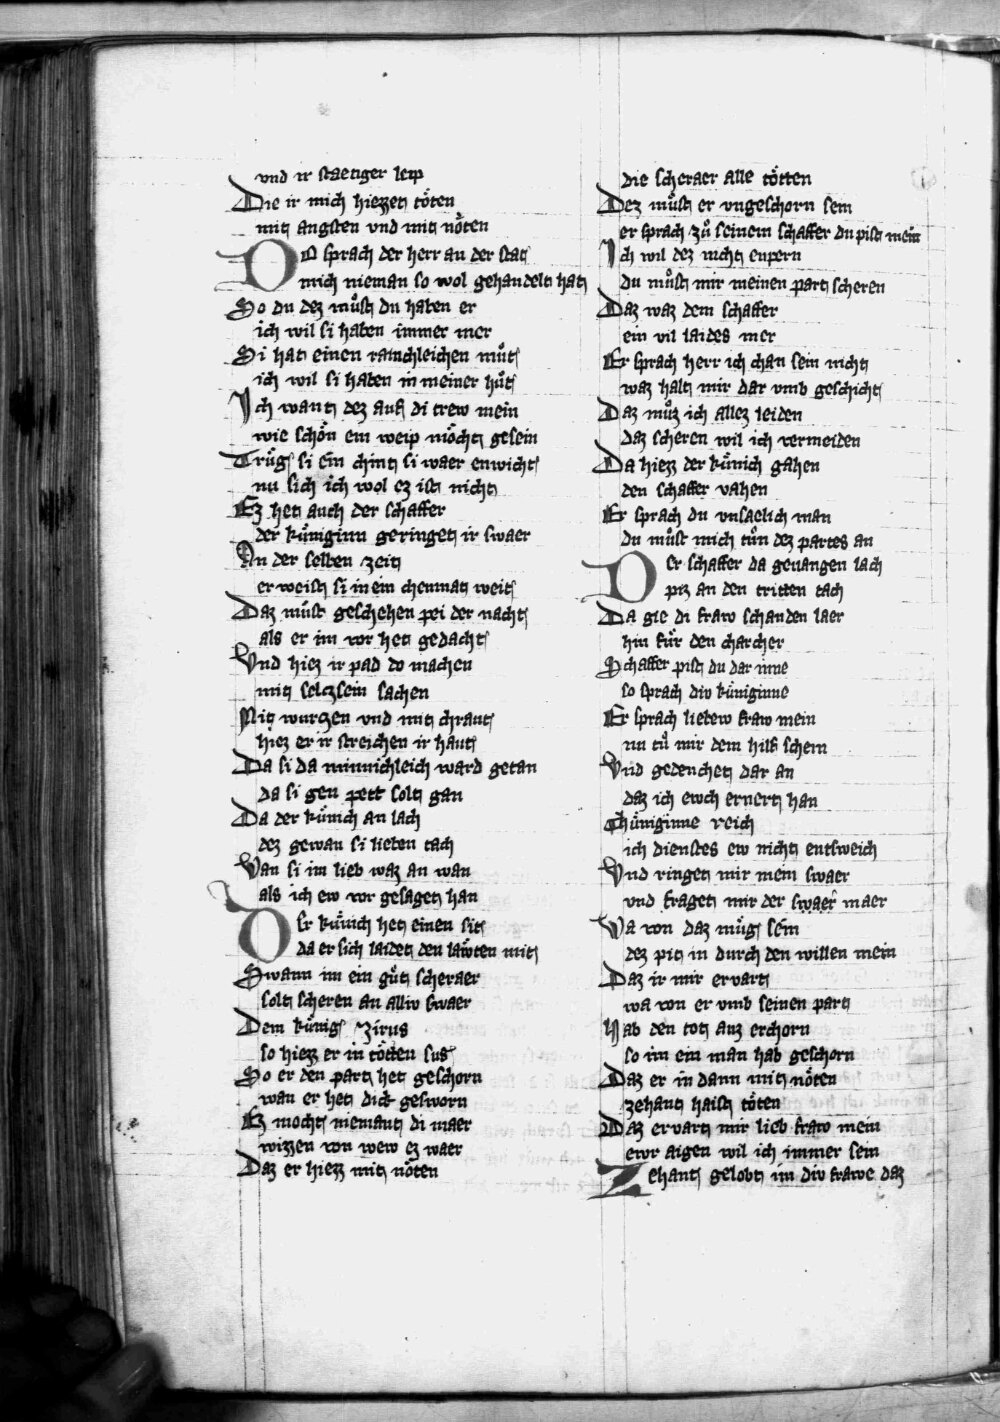 vnd ir staetiger leip
Die ir mich hiezzet töten
mit angsten vnd mit nöten
Do sprach der herr an der stat
mich nieman so wol gehandelt hat
So du dez müst du haben er
ich wil si haben immer mer
Si hat einen rainchleichen müt
ich wil si haben in meiner hüt
Ich want dez auf di trew mein
wie schön ein weip möcht gesein
Trüg si ein chint si waer enwicht
nu sich ich wol ez ist nicht
Ez het auch der schaffer
der küniginn geringet ir swaer
An der selben zeit
er weist si in ein chemnat weit
Daz müst geschehen pei der nacht
als er im vor het gedacht
Vnd hiez ir pad do machen
mit selczsein sachen
Mit wurczen vnd mit chraut
hiez er ir streichen ir haut
Da si da minnichleich ward getan
da si gen pett solt gan
Da der künich an lach
dez gewan si lieben tach
Wan si im lieb waz an wan
als ich ew vor gesaget han
Der künich het einen sit
da er sich laidet den läwten mit
Swann im ein güt scheraer
solt scheren an alliv swaer
Dem künig Zirus
so hiezz er in tötten sus
So er den part het geschorn
wan er het dick gesworn
Ez mocht niemant di maer
wizzen von wew ez waer
Daz er hiezz mit nöten
die scheraer alle tötten
Dez müst er vngeschorn sein
er sprach zü seinem schaffer du pist mein
Ich wil dez nicht enpern
du müst mir meinen part scheren
Daz waz dem schaffer
ein vil laides mer
Er sprach herr ich chan sein nicht
waz halt mir dar vmb geschicht
Daz müz ich allez leiden
daz scheren wil ich vermeiden
Da hiezz der künich gahen
den schaffer vahen
Er sprach du vnsaelich man
du müst mich tün dez partes an
Der schaffer da geuangen lach
piz an den tritten tach
Da gie di fraw schanden laer
hin für den charcher
Schaffer pist du dar inne
so sprach div küniginne
Er sprach liebew fraw mein
nu tü mir dein hilf schein
Vnd gedenchet dar an
daz ich ewch ernert han
Chüniginne reich
ich dienstes ew nicht entsweich
Vnd ringet mir mein swaer
vnd fraget mir der swaer maer
Wa von daz müg sein
dez pit in durch den willen mein
Daz ir mir ervart
wa von er vmb seinen part
Hab den tot auz erchorn
so im ein man hab geschorn
Daz er in dann mit nöten
zehant haist töten
Daz ervart mir lieb fraw mein
ewr aigen wil ich immer sein
Zehant gelobt im div frawe daz